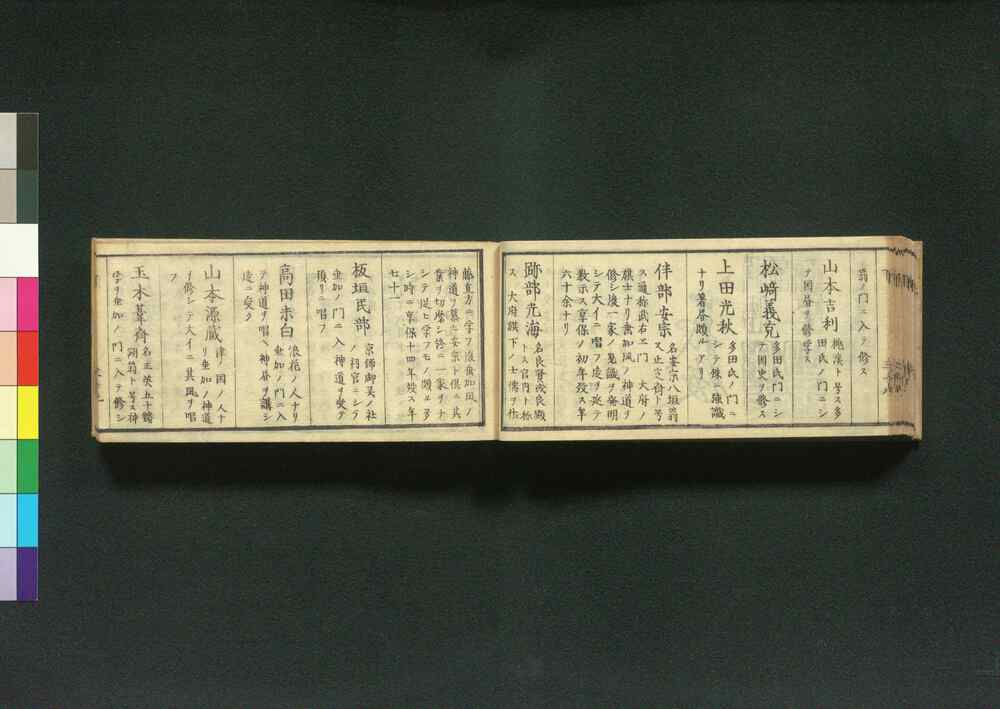 翁ノ門ニ入テ修ス
山本吉利 桃渓ト号ス多
田氏ノ門ニシ
テ国学ヲ修学ス
松﨑義克 多田氏門ニシ
テ国史ヲ修ス
上田光秋 多田氏ノ門ニ
シテ殊ニ強識
ナリ著書頗ルアリ
伴部安宗 名安宗八垣翁
ス止定斎ト号
ス通称武右ヱ門 大府ノ
旗士ナリ垂加風ノ神道ヲ
修シ後一家ノ見識ヲ発明
シテ大イニ唱フ遠ヲ延テ
数示ス享保ノ初年歿ス年
六十余ナリ
跡部光海 名良賢或良顕
トス宮内ト称
ス 大府旗下ノ士儒ヲ佐
藤直方ニ学フ後垂加風ノ
神道ヲ慕ニ安宗ト倶ニ其
業ヲ切磨シ終ニ一家ヲナ
シテ従ヒ学フモノ頗ル多
シ時ニ享保十四年歿ス年
七十一
板垣民部 京師御昊ノ社
ノ祠官ニシテ
垂加ノ門ニ入神道ヲ受ケ
頂リニ唱フ
高田未白 浪花ノ人ナリ
垂加ノ門ニ入
テ神道ヲ唱ヘ神書ヲ講シ
遠ニ及ク
山本源蔵 津ノ国ノ人ナ
リ垂加ノ神道
ヲ修シテ大イニ其風ヲ唱
フ
玉木葦斎 名正英五十鰭
翁ト号ス神
学ヲ垂加ノ門ニ入テ修シ